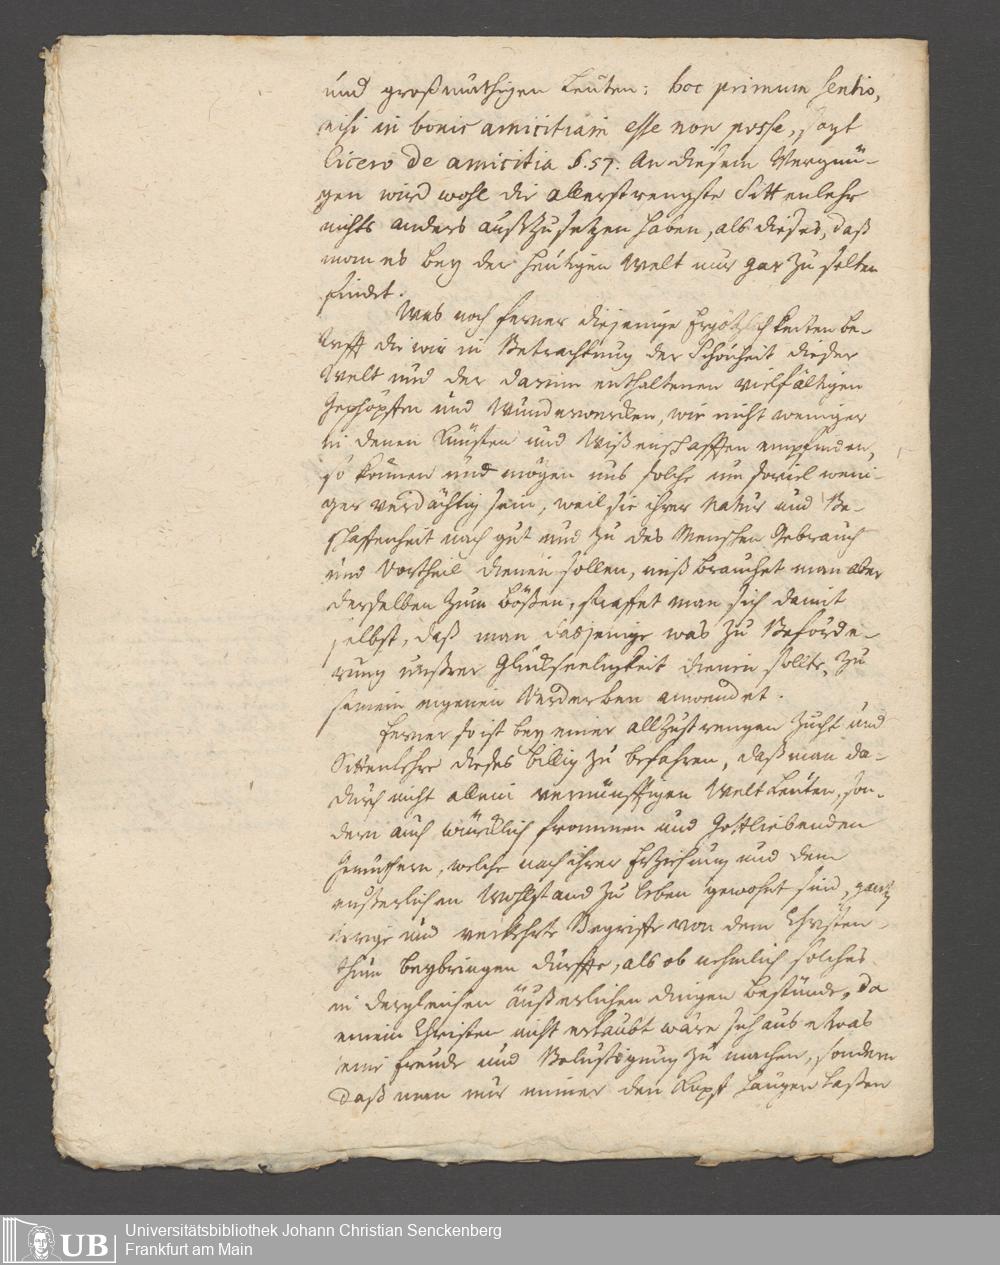 und großmüthigen Leuten: hoc primum sentio,
nisi in bonis amicitiam esse non posse, sagt
Cicero de amicitia §. 57. An diesem Vergnü-
gen wird wohl die allerstrengste Sittenlehr
nichts anders ausszusetzen haben, als dieses, daß
man es bey der heutigen Welt nur gar zu selten
findet.
Was noch ferner diejenige Ergötzlichkeiten be-
trifft die wir in Betrachtung der Schönheit dieser
Welt und der darinn enthaltenen vielfältigen
Geschöpften und Wunderwercken, wie nicht weniger
in denen Künsten und Wißenschafften empfinden,
so können und mögen uns solche um soviel weni-
ger verdächtig sein, weil sie ihrer Natur und Be-
schaffenheit nach gut und zu des Menschen Gebrauch
und Vortheil dienen sollen, mißbrauchet man aber
derselben zum Bößen, straffet man sich damit
selbst, daß man dasjenige was zu Beförde-
rung unßrer Glückseeligkeit dienen sollte, zu
seinem eigenen Verderben anwendet.
Ferner so ist bey einer allzustrengen Zucht und
Sittenlehre dieses billig zu befahren, daß man da-
durch nicht allein vernünfftigen Welt Leuten, son-
dern auch würcklich frommen und Gottliebenden
Gemüthern, welche nach ihrer Erziehung und dem
eußerlichen Wohlstand zu leben gewohnt sind, gantz
irrige und verkehrte Begriffe von dem Christen-
thum beybringen dürffte, als ob nehmlich solches
in dergleichen äußerlichen dingen bestünde, da
einem Christen nicht erlaubt wäre sich aus etwas
eine Freude und Belustigung zu machen, sondern
daß man nur immer den Kopf hangen laßen
Universitätsbibliothek Johann Christian Senckenberg
Frankfurt am Main
UB